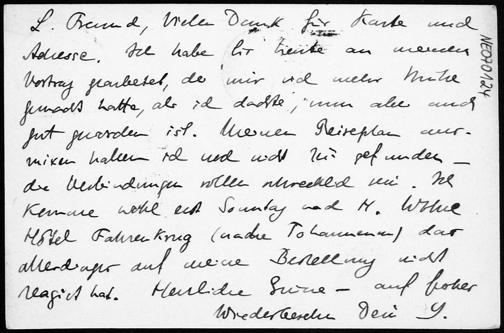 L. Freund, vielen Dank für Karte und
Adresse. Ich habe bis heute an meinem
Vortrag gearbeitet, der mir viel mehr Mühe
gemacht hatte, als ich dachte, nun aber auch
gut geworden ist. Meinen Reiseplan
haben ich noch nicht gefunden –
die Verbindungen sollen schrecklich sein. Ich
komme wohl erst Sonntag nach H. Wohne
Hôtel Fahrenkrug (nahe Johanneum) das
allerdings auf meine Bestellung nicht
reagiert hat. Herzliche Grüße – auf frohes
Wiedersehen Dein Y.
NE070124